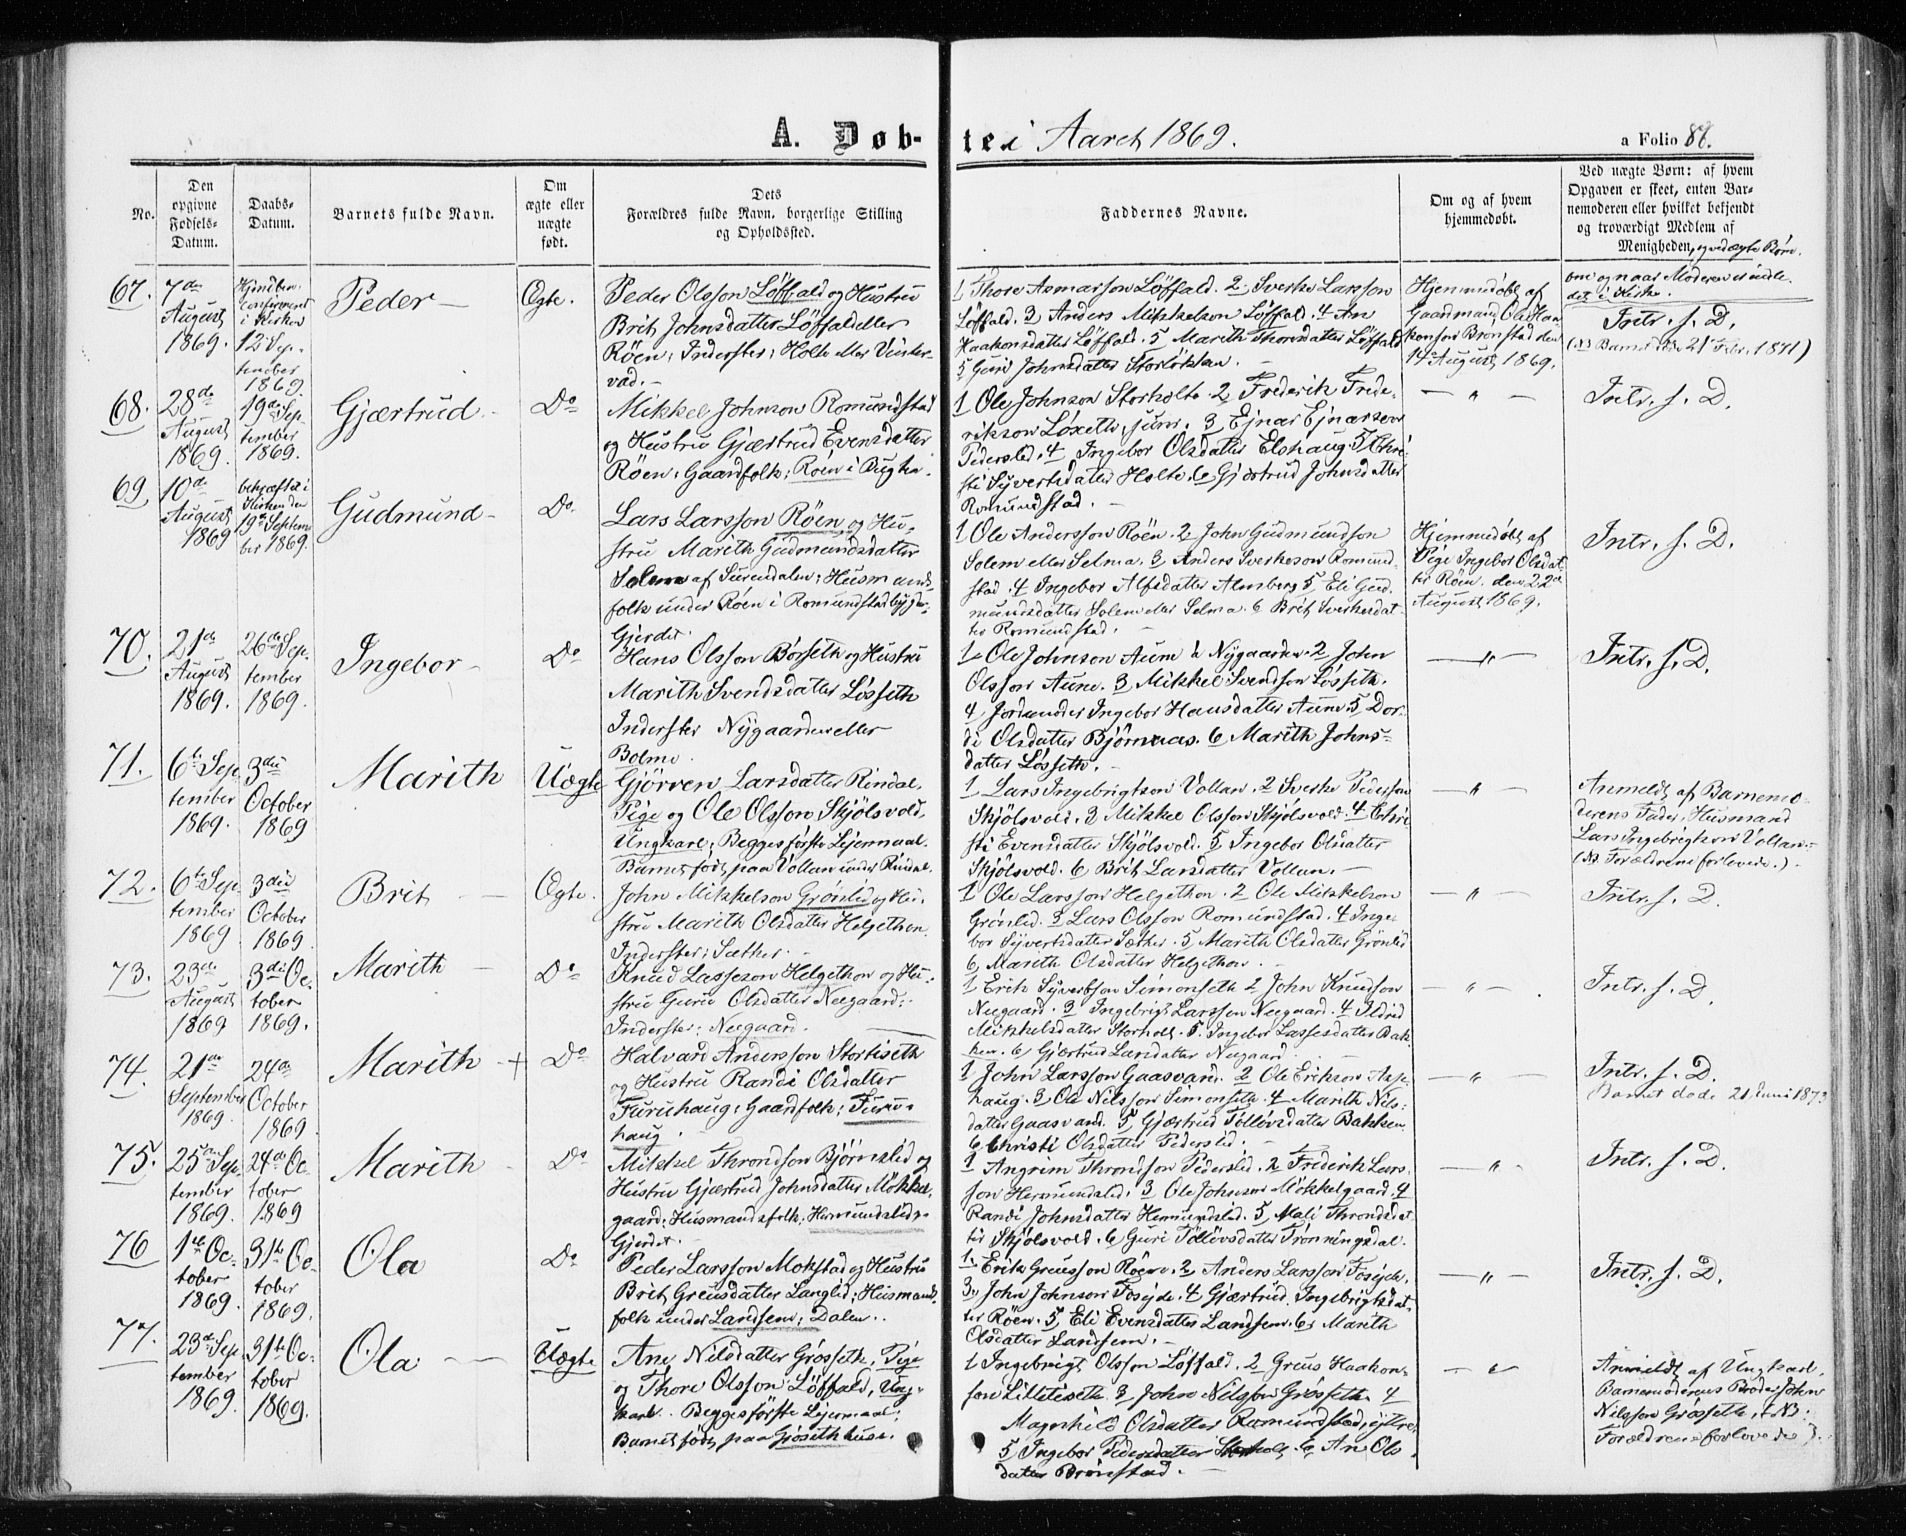 A. Døb-
te i Aaret 1869.
a Folio
No.
Den opgivne Fødsels-Datum.
Daabs-Datum.
Barnets fulde Navn.
Om ægte eller uægte født.
Dets Forældres fulde Navn, borgerlige Stilling og Opholdssted.
Faddernes Navne.
Om og af hvem hjemmedøbt.
Ved uægte Børn: af hvem
Opgaven er skeet, enten Bar-
nemoderen eller hvilket bekjendt
og troværdigt Medlem af
Menigheden, og ved ægte Børn
om og naar Moderen er indle-
det i Kirke.
67.
7de August 1869.
i Kirken 12 September 1869
Peder
Ægte.
Peder Olsson Løffald og Hustru
Brit Johnsdatter Løffald eller
Røen, Inderster, Holte eller Vinter-
vad.
1 Thore Løffald. 2 Sverke Larsson
Løffald. 3 Anders Mikkelson Løffald. 4 An
Haakonsdatter Løffald. 5 Marith Thorsdatter Løffald
5 Guri Johnsdatter Storløkken
Hjemmedøbt af
Gaardmand Ole Haa-
konson Brønstad den
14 August 1869.
Intr. s. D.
(NB Barnet døde 21 Febr. 1871)
68.
28de August 1869.
19de September 1869.
Gjærtrud
Do
Mikkel Johnson Romundstad
og Hustru Gjærtrud Evensdatter
Røen, Gaardfolk, Røen i
1 Ole Johnson Storholte 2 Frederik Frede-
rikson Løseth, junr. 3 Ejnar Ejnarson
Pederslid. 4 Ingebor Olsdatter Elshaug 5 Chri-
sti Syvertsdatter Holte. 6 Gjærtrud Johnsdatter
Romundstad.
— " —
Intr. s. D.
69
10de August 1869
bekræftet i Kirken den 19de September 1869.
Gudmund
Do
Lars Larsson Røen og Hu-
stru Marith Gudmundsdatter
Solem af Surendalen, Husmands-
folk under Røen i Romundstadbygden
Gjerdet.
1 Ole Andersson Røen. 2 John Gudmundson
Solem eller Selma. 3 Anders Sverkeson Romund-
stad. 4 Ingebor Alfsdatter Almberg 5 Eli Gud-
mundsdatter Solem eller Selma. 6 Brit Sverkesdat-
ter Romundstad.
Hjemmedøbt af
Pige Ingebor Olsdat-
ter Røen den 22de
August 1869.
Intr. s. D.
70.
21de August 1869.
26de September 1869.
Ingebor
Do
Hans Olsson Børseth og Hustru
Marith Svendsdatter Løsseth
Inderster Nygaarden eller
Bolme.
1 Ole Johnson Aune i Nygaarden. 2 John
Olsson Aune. 3 Mikkel Svendson Løsseth.
4 Ingebor Hansdatter Aune 5 Dor-
di Olsdatter Bjørnaas. 6 Marith Johns-
datter Løsseth.
— " —
Intr. s. D.
71.
6te September 1869.
3die October 1869
Marith
Uægte
Gjørven Larsdatter Rindal,
Pige og Ole Olsson Skjølsvold,
Ungkarl, Begges første Lejermaal.
Barnet født paa Vollan under Rindal.
1 Lars Ingebrigtson Vollan. 2 Sverke Pedersson
Skjølsvold. 3 Mikkel Olsson Skjølsvold. 4 Chri-
sti Evensdatter Skjølsvold. 5 Ingebor Olsdatter
Skjølsvold. 6 Brit Larsdatter Vollan.
— " —
Anmeldt af Barnemo-
derens Fader, Husmand
Lars Ingebrigtson Vollan
(NB Forældrene forlovede.)
72.
6te September 1869
3die October 1869.
Brit
Ægte.
John Mikkelson Grønlid og Hu-
stru Marith Olsdatter Helgethon.
Inderster, Sæther.
1 Ole Larsson Helgethon. 2 Ole Mikkelson
Grønlid. 3 Lars Olsson Romundstad. 4 Inge-
bor Syvertsdatter Sæther. 5 Marith Olsdatter Grønlid
6 Marith Olsdatter Helgethon.
— " —
Intr. s. D.
73.
23de August 1869
3die October 1869.
Marith
Do
Knud Lassesøn Helgethon og Hu-
stru Guru Olsdatter Neegaard.
Inderster, Neegaard.
1 Erik Syvertson Simonseth 2 John Knudson
Neegaard. 3 Ingebrigt Larsson Neegaard. 4 Ildrid
Mikkelsdatter Storholt. 5. Ingebor Lassesdatter Bak-
ken. 6 Gjærtrud Larsdatter Neegaard
— " —
Intr. s. D.
74.
21de September 1869.
24de October 1869
Marith +
Do
Halvard Andersson Stortiseth
og Hustru Randi Olsdatter
Furuhaug, Gaardfolk, Furu-
haug.
1 John Larsson Gaasvand. 2 Ole Erikson Asp-
haug. 3 Ole Nilsson Simonseth. 4 Marith Nils-
datter Gaasvand. 5 Gjærtrud Tølløvsdatter Bakken
6 Christi Olsdatter Pederslid.
— " —
Intr. s. D.
Barnet døde 21 Juni 1873
75.
25de September 1869.
24de October 1869
Marith
Do
Mikkel Throndson Bjørnslid og
Hustru Gjærtrud Johnsdatter Møkkel-
gaard, Husmandsfolk, Hermundslid-
Gjerdet.
1 Angrim Throndson Pederslid. 2 Frederik Lars-
son Hermundslid. 3 Ole Johnson Møkkelgaard. 4
Randi Johnsdatter Hermundslid. 5 Mali Throndsdat-
ter Skjølsvold. 6 Guri Tølløvsdatter Trønningsdal.
— " —
Intr. s. D.
76
1ste October 1869.
31te October 1869.
Ola
Do
Peder Larsson Mokstad og Hustru
Brit Greusdatter Langlid, Husmands-
folk under Landsem, Dalen.
1. Erik Greusson Røen. 2 Anders Larsson Fosejde.
3. John Johnson Fosejde. 4 Gjærtrud Ingebrigtsdat-
ter Røen. 5 Eli Evensdatter Landsem. 6 Marith
Olsdatter Landsem.
— " —
Intr. s. D.
77.
23de September 1869.
31te October 1869.
Ola
Uægte
Ane Nilsdatter Grøsseth, Pige
og Thore Olsson Løffald, Ung-
karl. Begges første Lejermaal.
Barnet født paa Grøsethhuse.
1 Ingebrigt Olsson Løffald. 2 Greus Haakon-
son Litletiseth 3 John Nilsson Grøsseth 4
Magnhild Olsdatter Romundstad,
5 Ingebor Pedersdatter Storholt 6 An Ols-
datter Brønstad.
— " —
Anmeldt af Ungkarl,
Barnemoderens Broder John
Nilsson Grøsseth, (NB:
Forældrene forlovede).